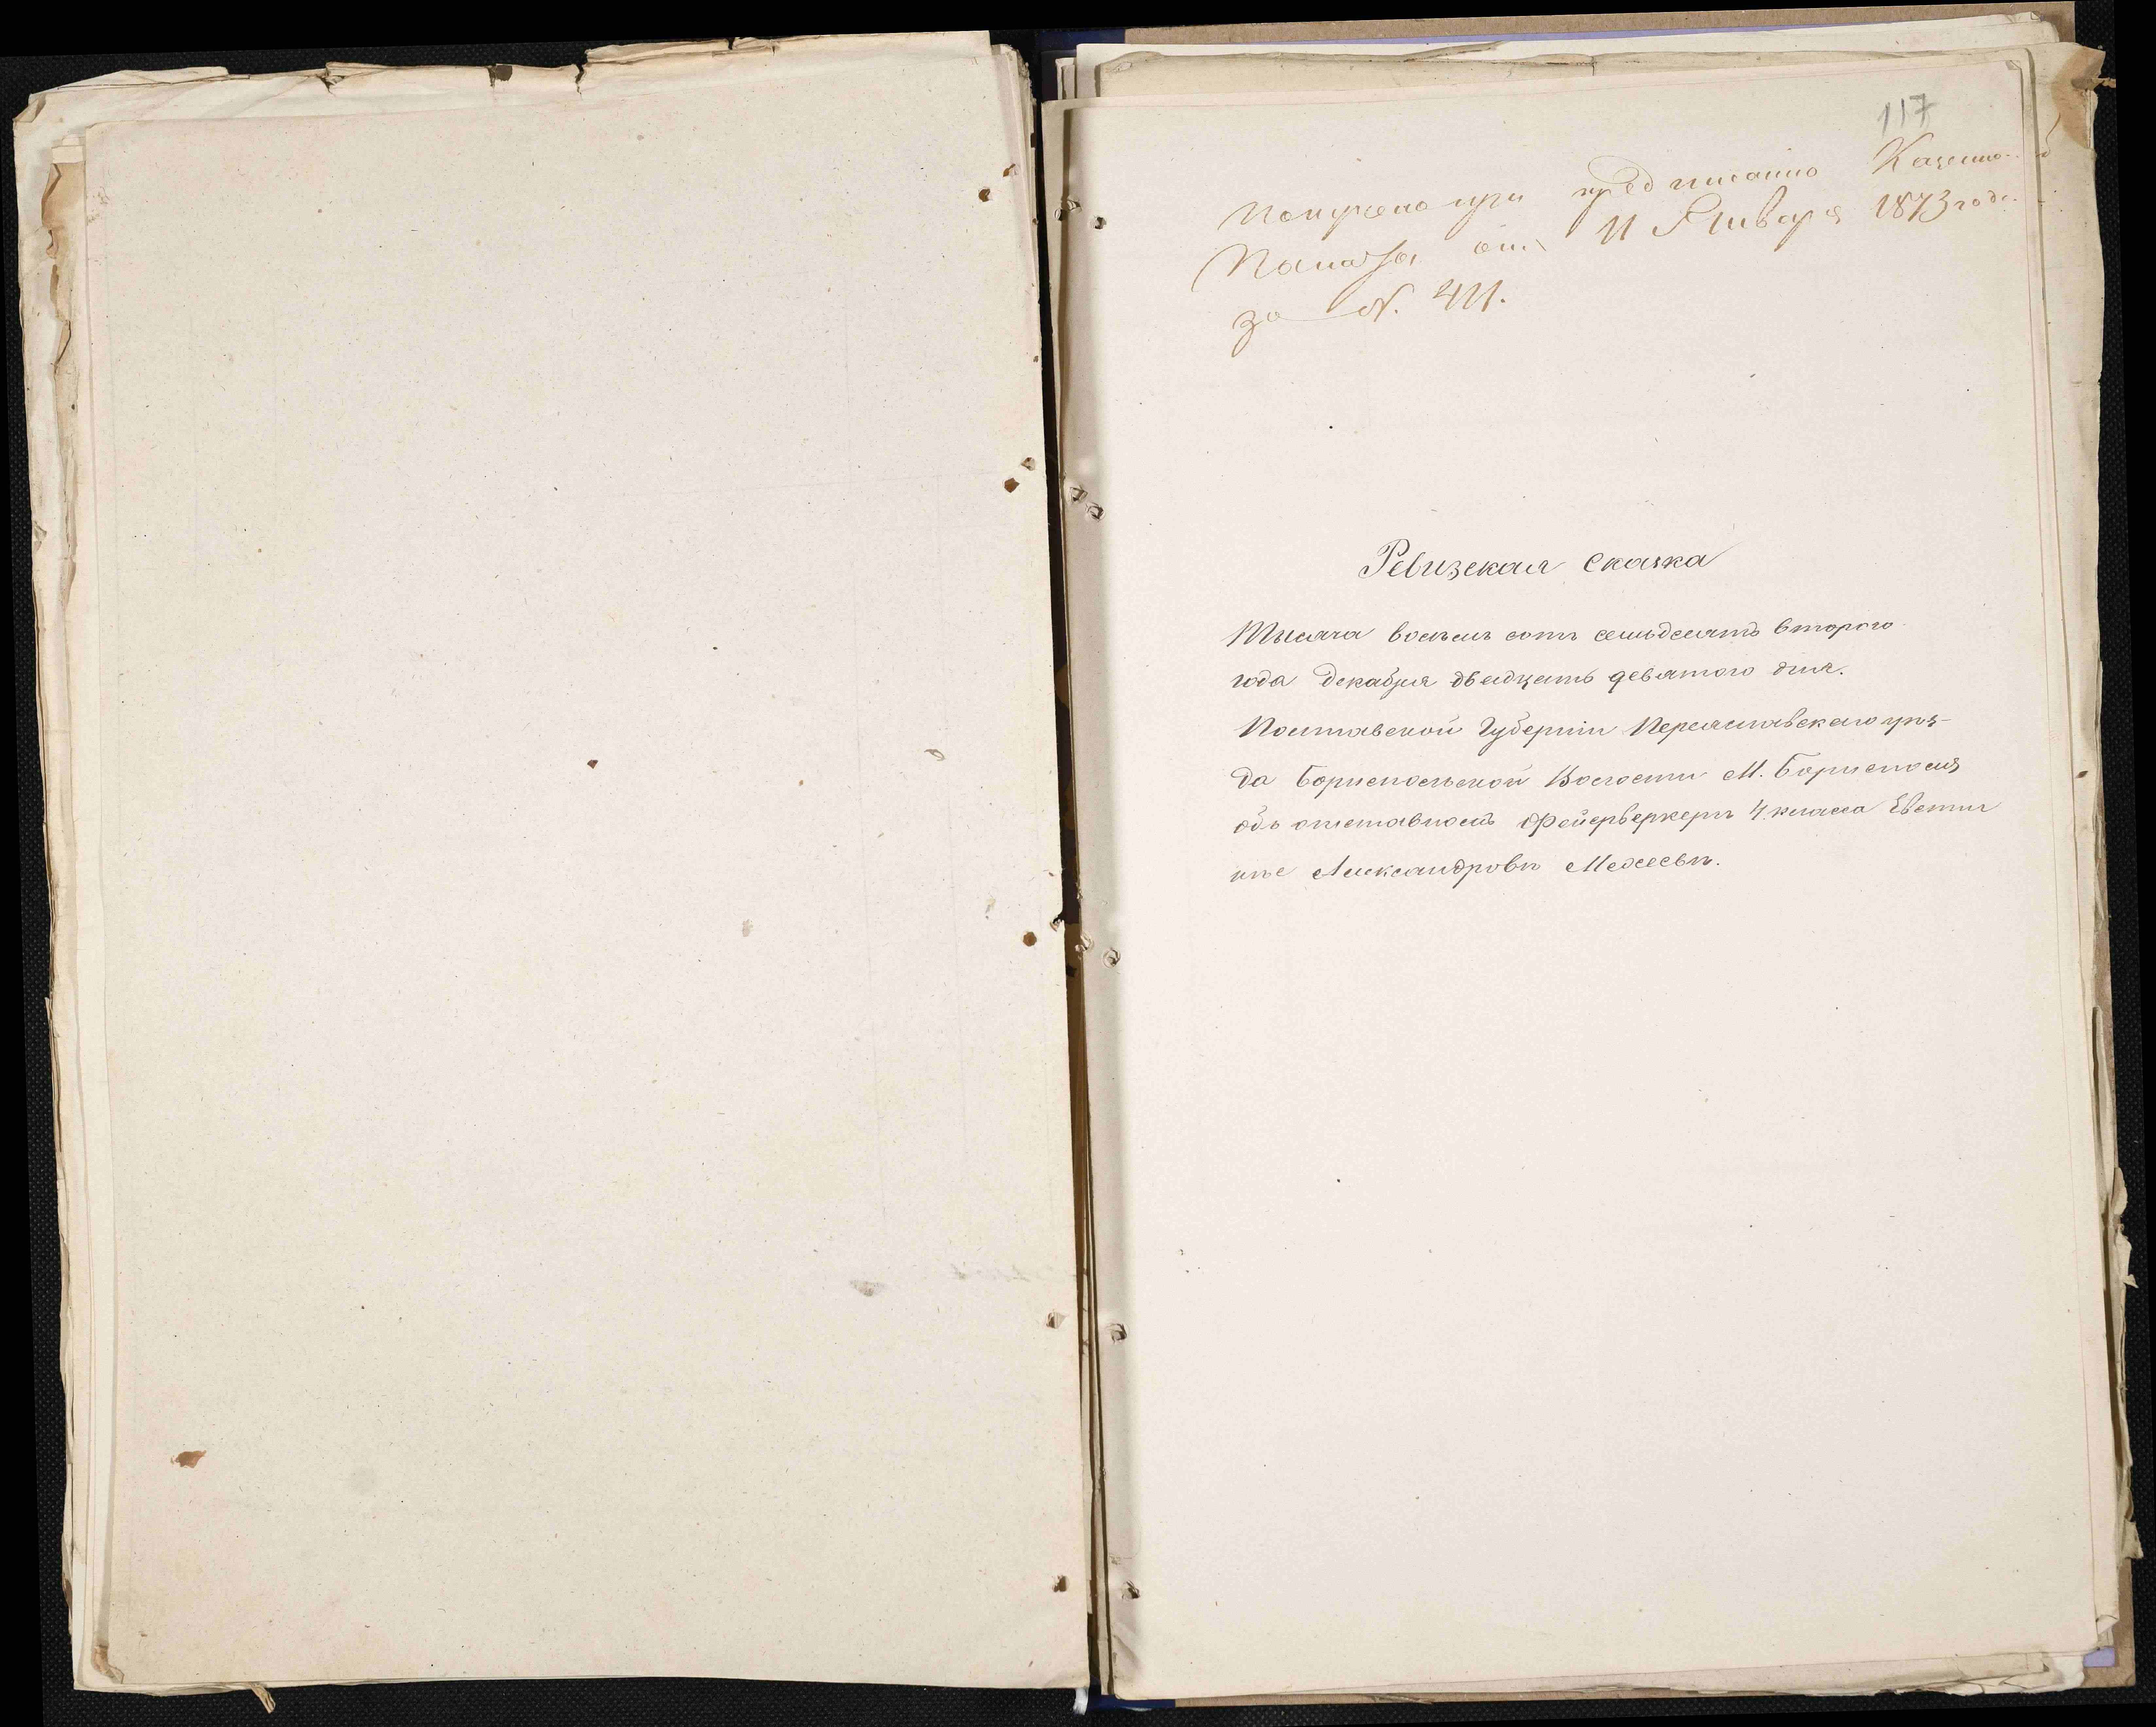 117
Получено при предписанiю Казенно
Палаты отъ 11 Января 1873 года
за N. 411.
Ревизская сказка
Тысяча восемь сотъ семьдесятъ второго
года декабря двадцать девятого дня.
Полтавской Губернiи Переяславского уѣз-
да Бориспольской Волости М. Борисполя
объ отставномъ Фейерверкеръ 4 класса Евстиг
нѣе Александровѣ Мехеевѣ.